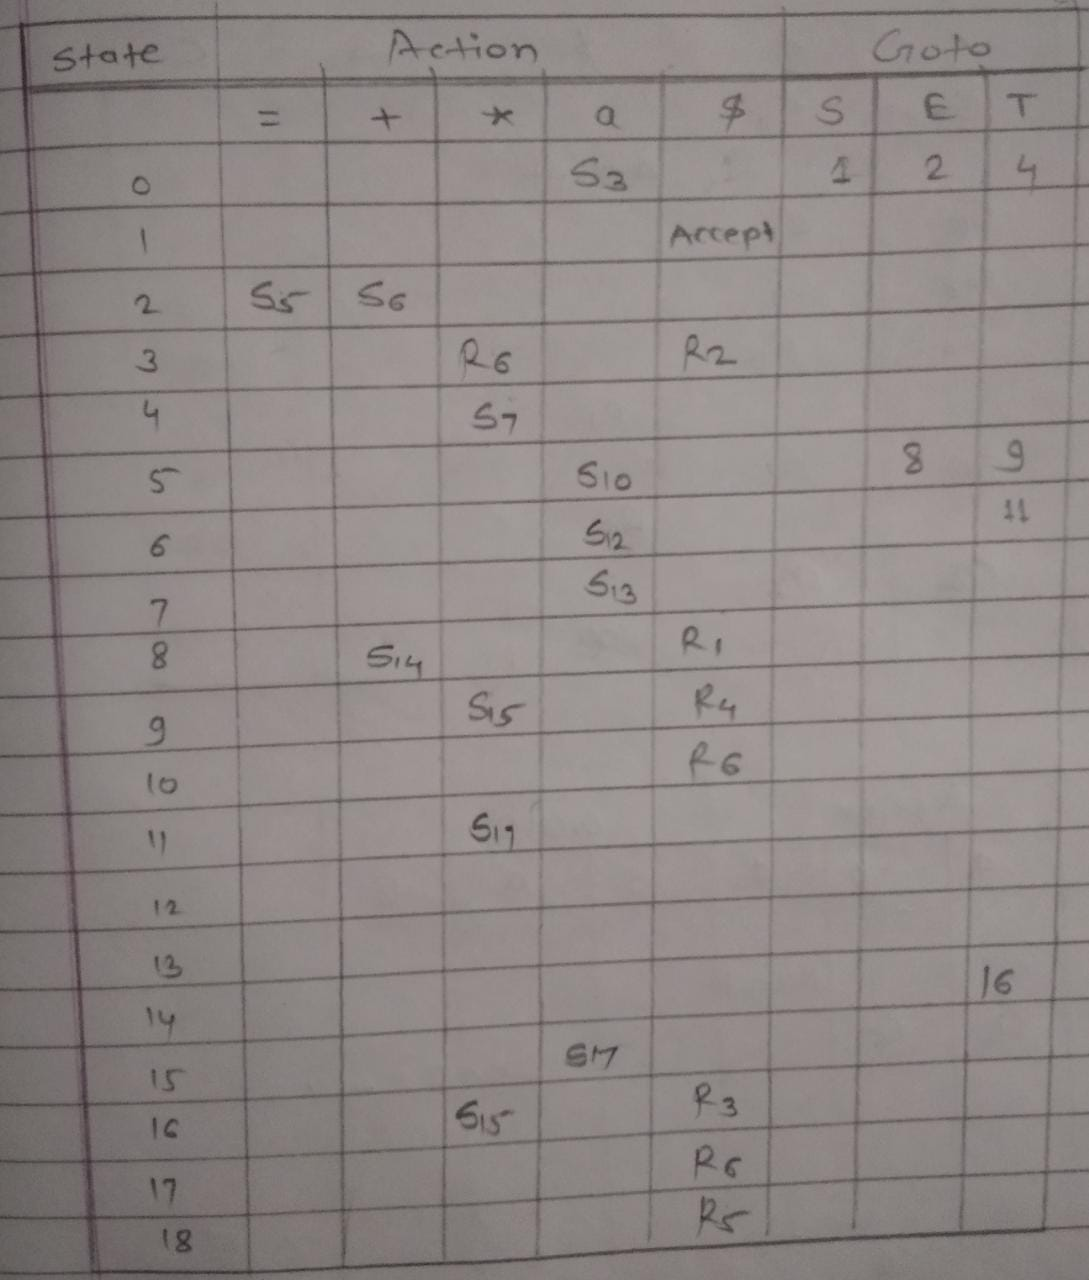 State Action Goto
= + * a $ S E T
0 S3 1 2 4
1 Accept
2 S5 S6
3 R6 R2
4 S7
5 S10 8 9
6 S12 11
7 S13
8 S14 R1
9 S15 R4
10 R6
11
12
13
14 16
15 S17
16 S15 R3
17 R6
18 R5